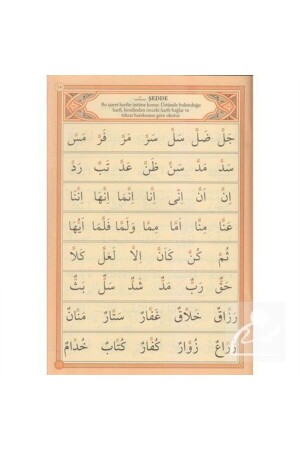 ŞEDDE
Bu işaret harfin üstüne konur. Üstünde bulunduğu
harfi, kendinden önceki harfe bağlar ve
ikinci harekesine göre okutur.
جَلَّ ضَلَّ سَلَّ سَرَّ مَرَّ فَرَّ مَسَّ
سَدَّ مَدَّ سَنَّ ظَنَّ عَدَّ تَبَّ رَدَّ
اِنَّ اَنَّ اِنّٖى اَنَّا اِنَّمَا اِنَّهَا اِنَّنَا
عَنَّا مِنَّا اَمَّا مِمَّا وَلَمَّا فَلَمَّا اَيُّهَا
ثُمَّ كُنَّ كَاَنَّ اِلَّا لَعَلَّ كَلَّا
حَقٌّ رَبٌّ مَدٌّ شَدٌّ سَلٌّ بَثٌّ
رَزَّاقٌ خَلَّاقٌ غَفَّارٌ سَتَّارٌ مَنَّانٌ
زُرَّاعٌ زُوَّارٌ كُفَّارٌ كُتَّابٌ خُدَّامٌ